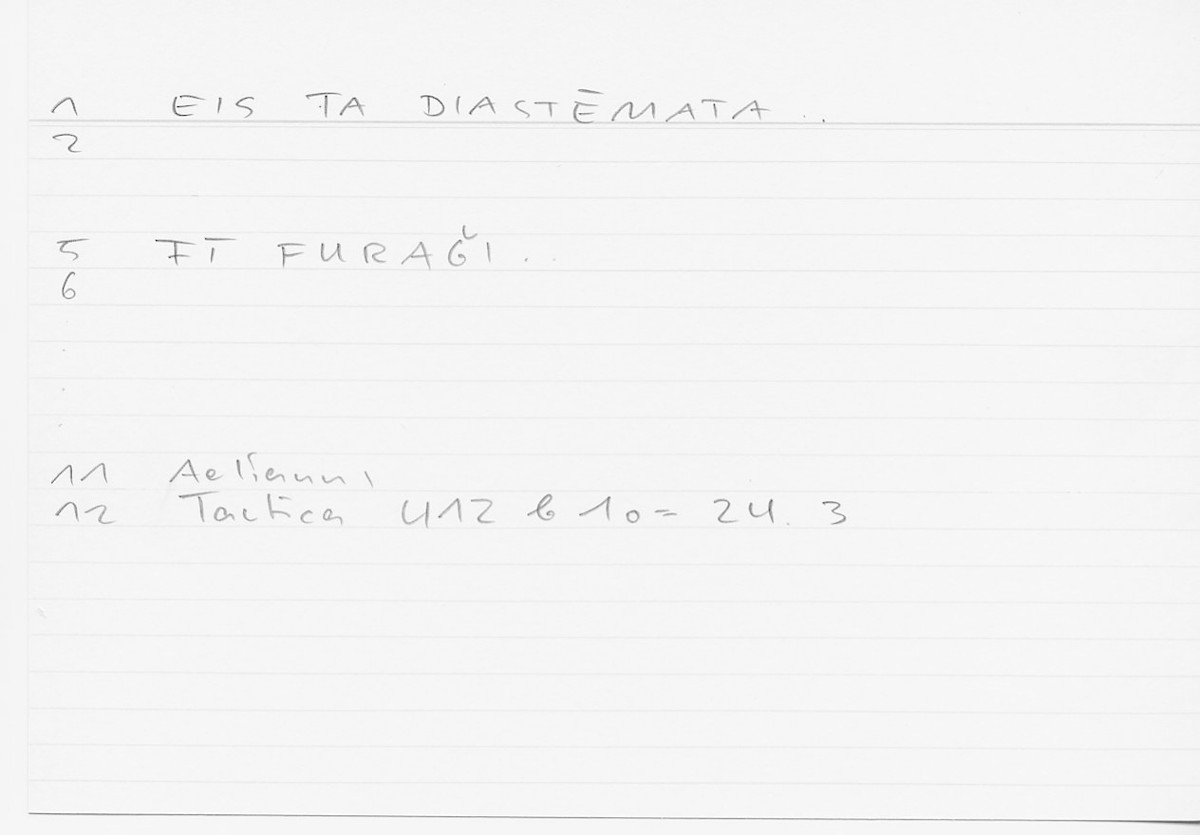 1 EIS TA DIASTĒMATA..
2
5 FĪ FURAǦI..
6
11 Aelianus
12 Tactica 412 b 10 = 24. 3